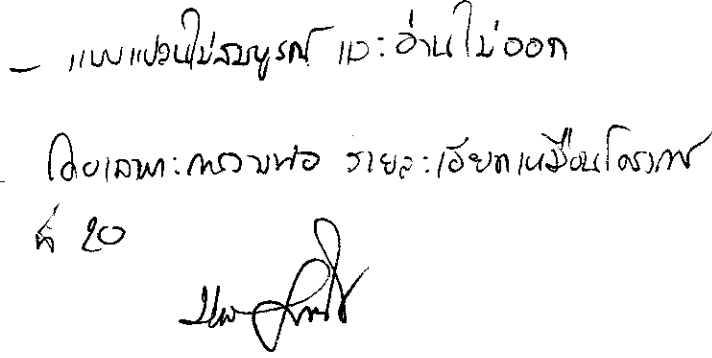 - แบบแปลนไม่สมบูรณ์ และอ่านไม่ออก
โดยเฉพาะ รายละเอียดเหมือนโครงการ
ที่ 20